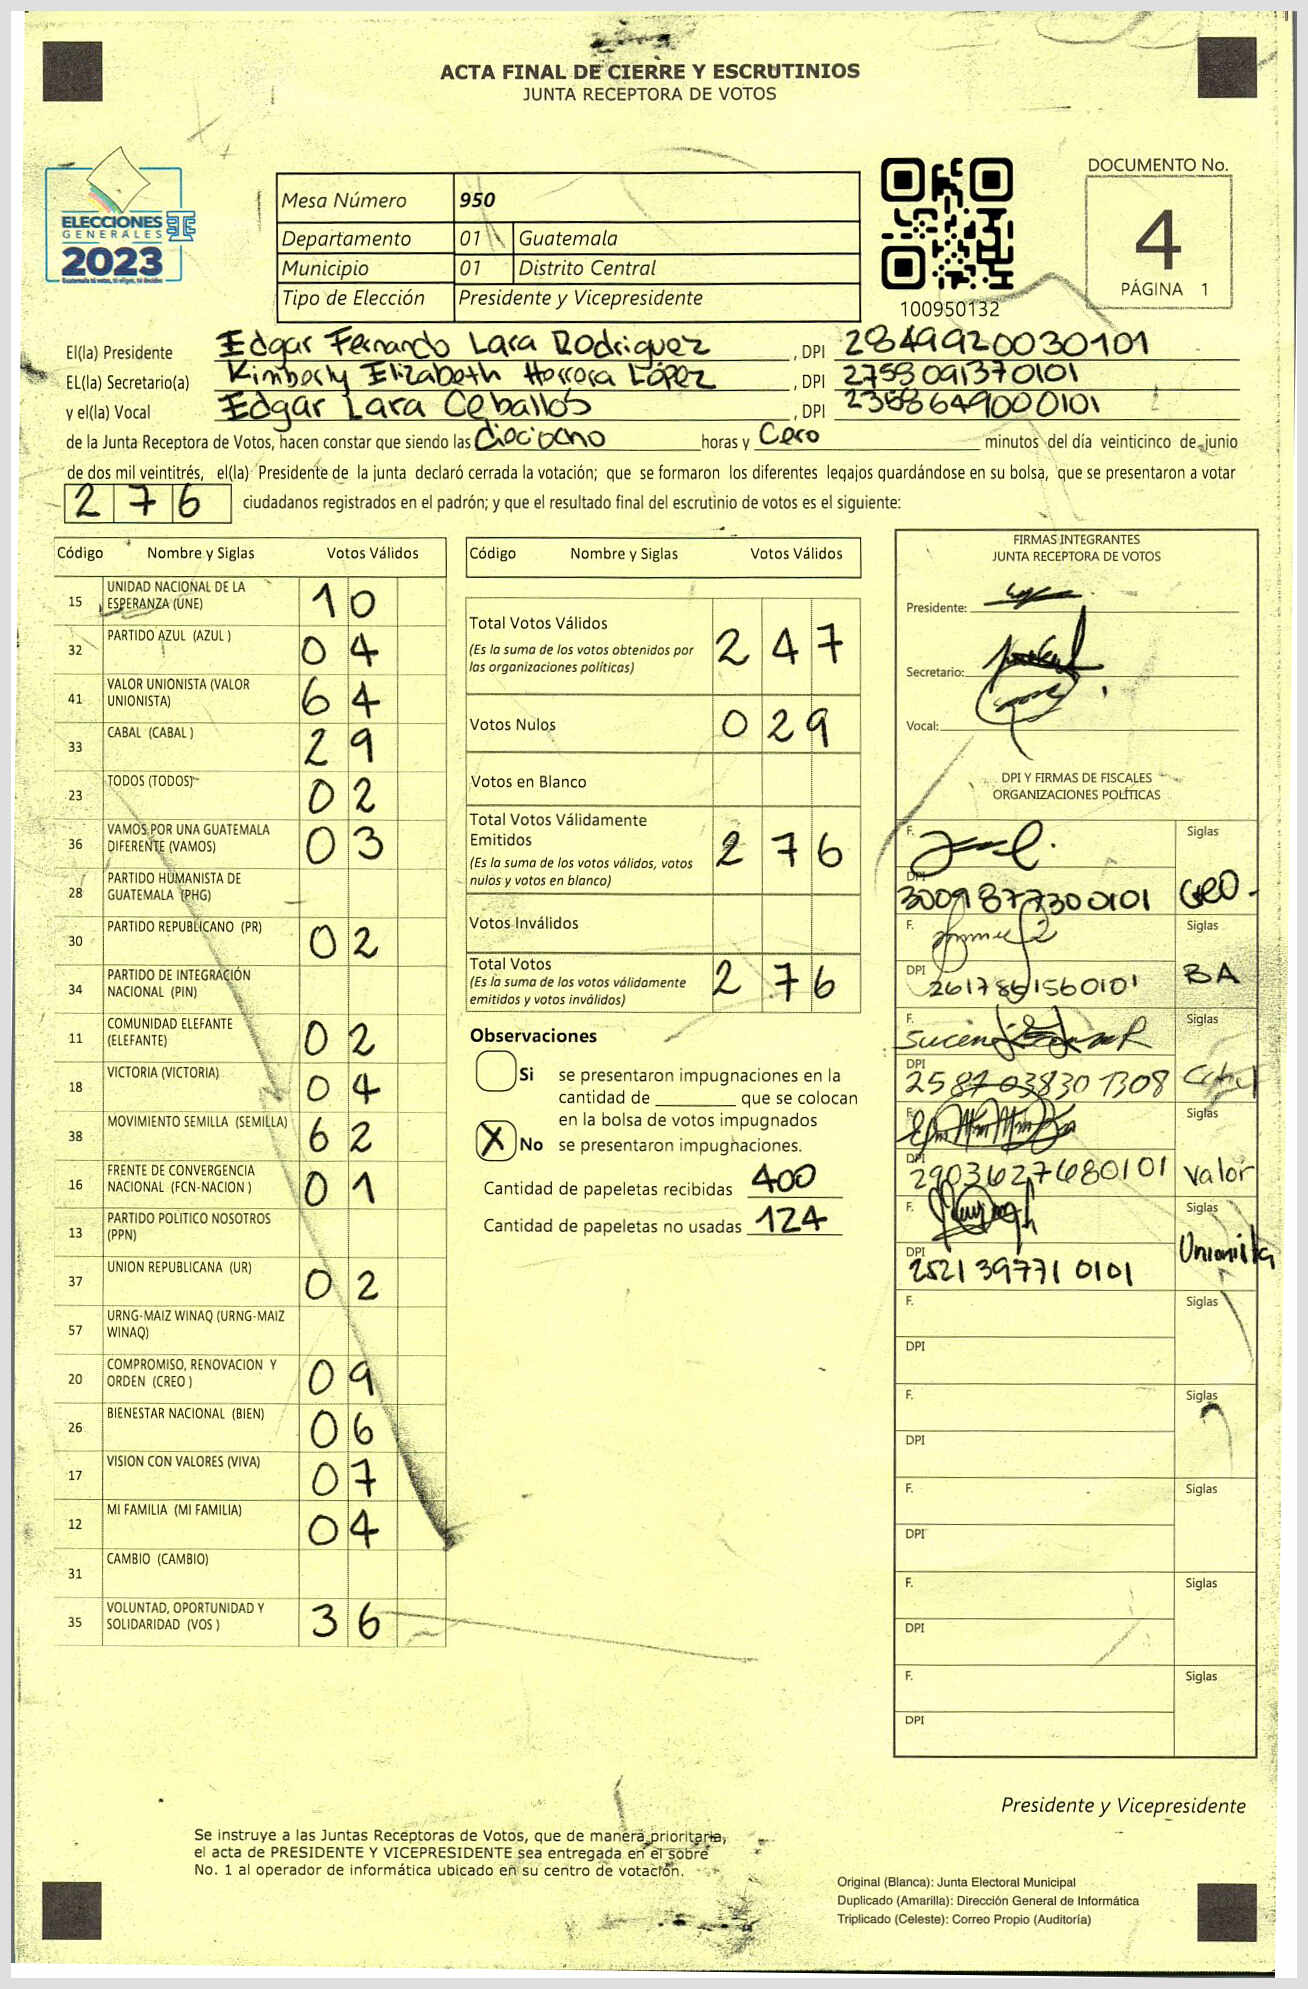 ACTA FINAL DE CIERRE Y ESCRUTINIOS
JUNTA RECEPTORA DE VOTOS
ELECCIONES
GENERALES
2023
Mesa Número 950
Departamento 01 Guatemala
Municipio 01 Distrito Central
Tipo de Elección Presidente y Vicepresidente
100950132
DOCUMENTO No.
4
PÁGINA 1
El(la) Presidente Edgar Fernando Lara Rodriguez , DPI 2849920030101
EL(la) Secretario(a) Kimberly Elizabeth Herrera López , DPI 2758091370101
y el(la) Vocal Edgar Lara Ceballos , DPI 2358649000101
de la Junta Receptora de Votos, hacen constar que siendo las dieciocho horas y Cero minutos del día veinticinco de junio
de dos mil veintitrés, el(la) Presidente de la junta declaró cerrada la votación; que se formaron los diferentes legajos guardándose en su bolsa, que se presentaron a votar
276 ciudadanos registrados en el padrón; y que el resultado final del escrutinio de votos es el siguiente:
Código Nombre y Siglas Votos Válidos
15 UNIDAD NACIONAL DE LA ESPERANZA (UNE) 10
32 PARTIDO AZUL (AZUL ) 04
41 VALOR UNIONISTA (VALOR UNIONISTA) 64
33 CABAL (CABAL ) 29
23 TODOS (TODOS) 02
36 VAMOS POR UNA GUATEMALA DIFERENTE (VAMOS) 03
28 PARTIDO HUMANISTA DE GUATEMALA (PHG)
30 PARTIDO REPUBLICANO (PR) 02
34 PARTIDO DE INTEGRACIÓN NACIONAL (PIN)
11 COMUNIDAD ELEFANTE (ELEFANTE) 02
18 VICTORIA (VICTORIA) 04
38 MOVIMIENTO SEMILLA (SEMILLA) 62
16 FRENTE DE CONVERGENCIA NACIONAL (FCN-NACION ) 01
13 PARTIDO POLITICO NOSOTROS (PPN)
37 UNION REPUBLICANA (UR) 02
57 URNG-MAIZ WINAQ (URNG-MAIZ WINAQ)
20 COMPROMISO, RENOVACION Y ORDEN (CREO ) 09
26 BIENESTAR NACIONAL (BIEN) 06
17 VISION CON VALORES (VIVA) 07
12 MI FAMILIA (MI FAMILIA) 04
31 CAMBIO (CAMBIO)
35 VOLUNTAD, OPORTUNIDAD Y SOLIDARIDAD (VOS ) 36
Código Nombre y Siglas Votos Válidos
Total Votos Válidos 247
(Es la suma de los votos obtenidos por
las organizaciones políticas)
Votos Nulos 029
Votos en Blanco
Total Votos Válidamente
Emitidos 276
(Es la suma de los votos válidos, votos
nulos y votos en blanco)
Votos Inválidos
Total Votos 276
(Es la suma de los votos válidamente
emitidos y votos inválidos)
Observaciones
Si se presentaron impugnaciones en la
cantidad de ________ que se colocan
en la bolsa de votos impugnados
X No se presentaron impugnaciones.
Cantidad de papeletas recibidas 400
Cantidad de papeletas no usadas 124
FIRMAS INTEGRANTES
JUNTA RECEPTORA DE VOTOS
Presidente:
Secretario:
Vocal:
DPI Y FIRMAS DE FISCALES
ORGANIZACIONES POLÍTICAS
F. Siglas
DPI 3009877300101
F. Siglas
DPI 2617861560101 BA
F. Siglas
DPI 2587038301308
F. Siglas
DPI 2903627680101 Valor
F. Siglas
DPI 2521397710101 Unionista
F. Siglas
DPI
F. Siglas
DPI
F. Siglas
DPI
F. Siglas
DPI
F. Siglas
DPI
Presidente y Vicepresidente
Se instruye a las Juntas Receptoras de Votos, que de manera prioritaria,
el acta de PRESIDENTE Y VICEPRESIDENTE sea entregada en el sobre
No. 1 al operador de informática ubicado en su centro de votación.
Original (Blanca): Junta Electoral Municipal
Duplicado (Amarilla): Dirección General de Informática
Triplicado (Celeste): Correo Propio (Auditoría)